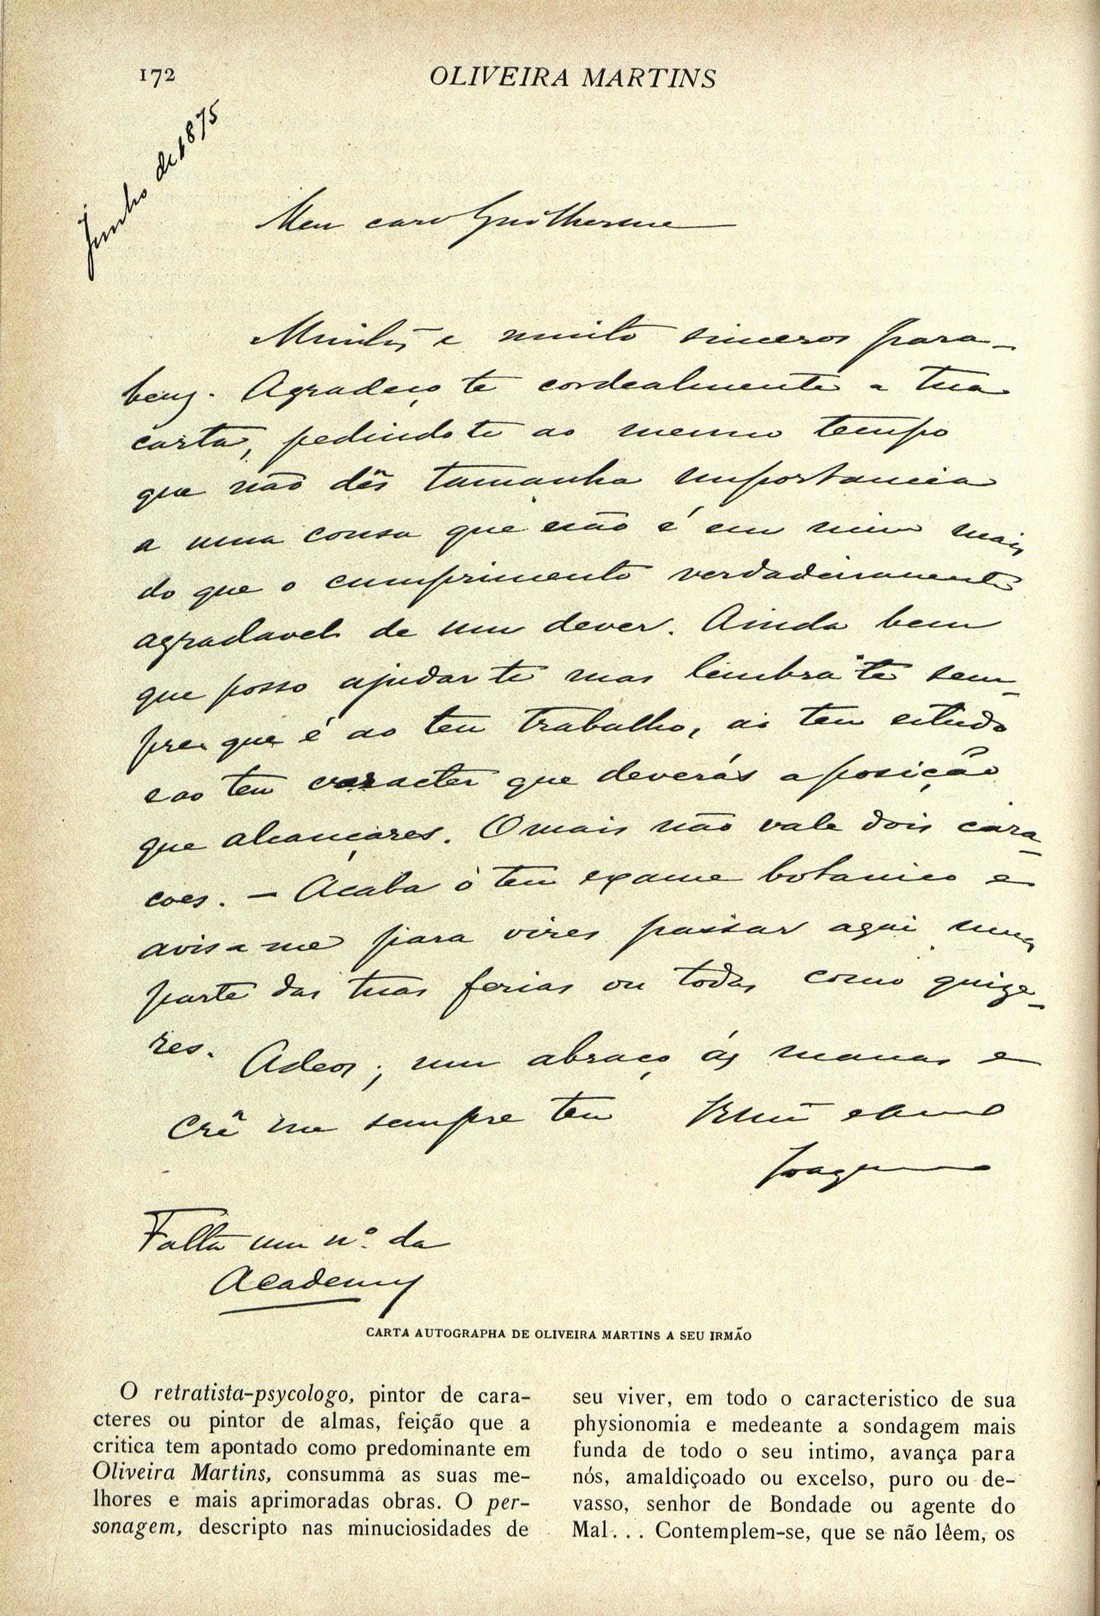 172
OLIVEIRA MARTINS
Junho de 1875
Meu caro Guilherme
Muitos e muito sinceros para-
bens. Agradeço te cordealmente a tua
carta, pedindo te ao mesmo tempo
que não dês tamanha importancia
a uma cousa que não é em mim mais
do que o cumprimento verdadeiramente
agradavel de um dever. Ainda bem
que posso ajudar te mas lembra te sem-
pre que é ao teu trabalho, ao teu estudo
e ao teu caracter que deverás a posição
que alcançares. O mais não vale dois cara-
coes. — Acaba o teu exame botanico e
avisa me para vires passar aqui uma
parte das tuas ferias ou todas como quize-
res.
Adeos; um abraço ás manas e
crê me sempre teu Irmão
Joaquim
Falta um nº. da
Academy
CARTA AUTOGRAPHA DE OLIVEIRA MARTINS A SEU IRMÃO
O retratista-psycologo, pintor de cara-
cteres ou pintor de almas, feição que a
critica tem apontado como predominante em
Oliveira Martins, consumma as suas me-
lhores e mais aprimoradas obras. O per-
sonagem, descripto nas minuciosidades de
seu viver, em todo o caracteristico de sua
physionomia e medeante a sondagem mais
funda de todo o seu intimo, avança para
nós, amaldiçoado ou excelso, puro ou de-
vasso, senhor de Bondade ou agente do
Mal... Contemplem-se, que se não lêem, os